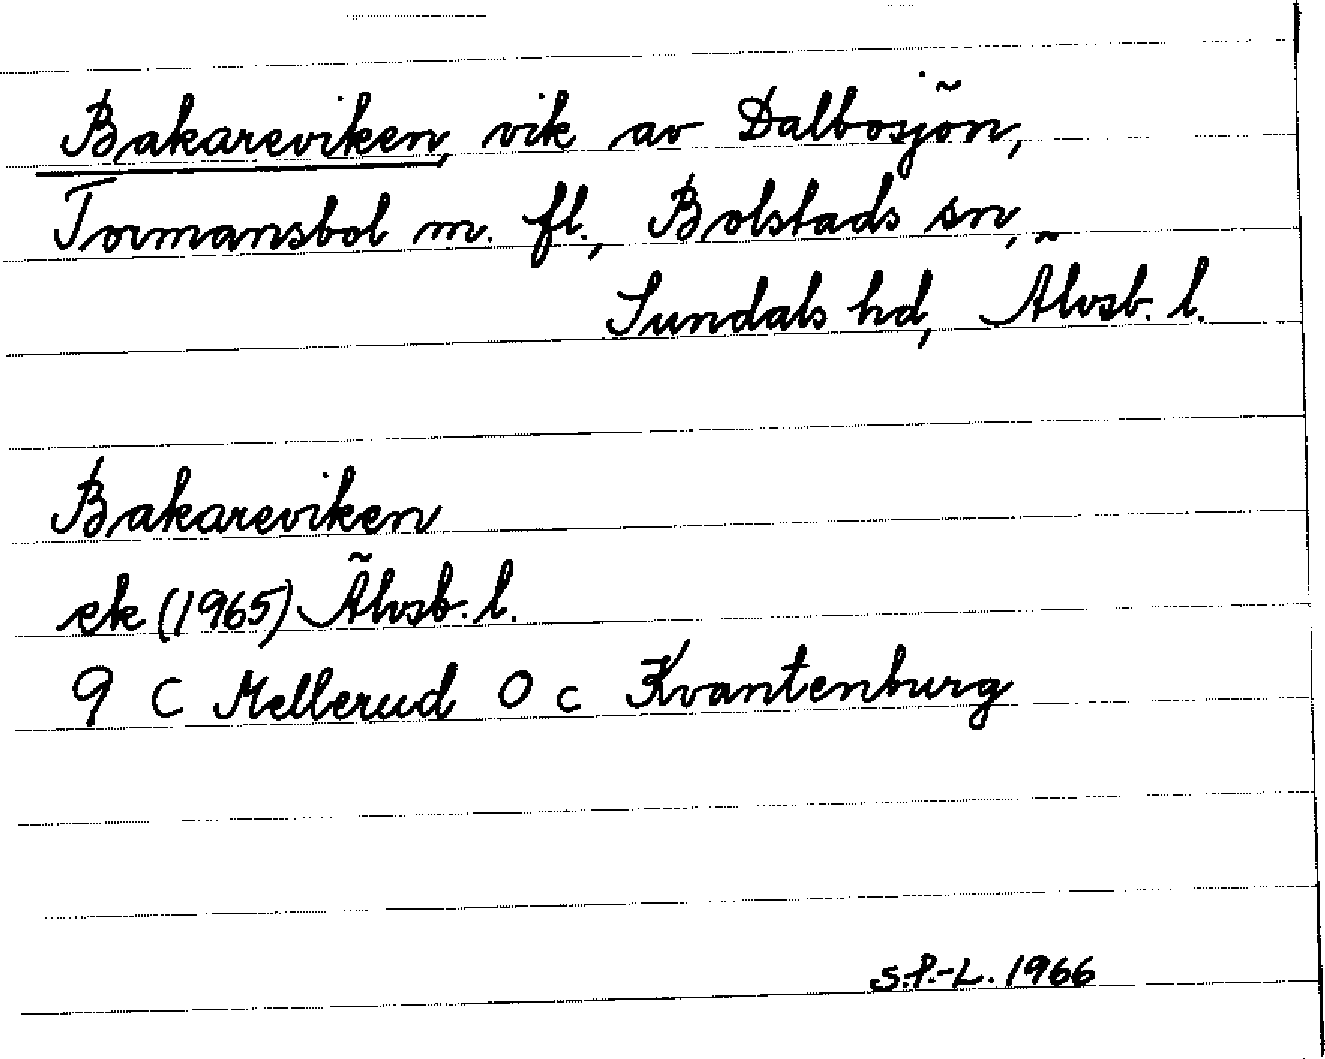 Bakareviken, vik av Dalbosjön,
Tormansbol m. fl., Bolstads sn,
Sundals hd, Älvsb. l.
Bakareviken
ek (1965) Älvsb. l.
9 C Mellerud O c Kvantenburg
S.P.-L. 1966